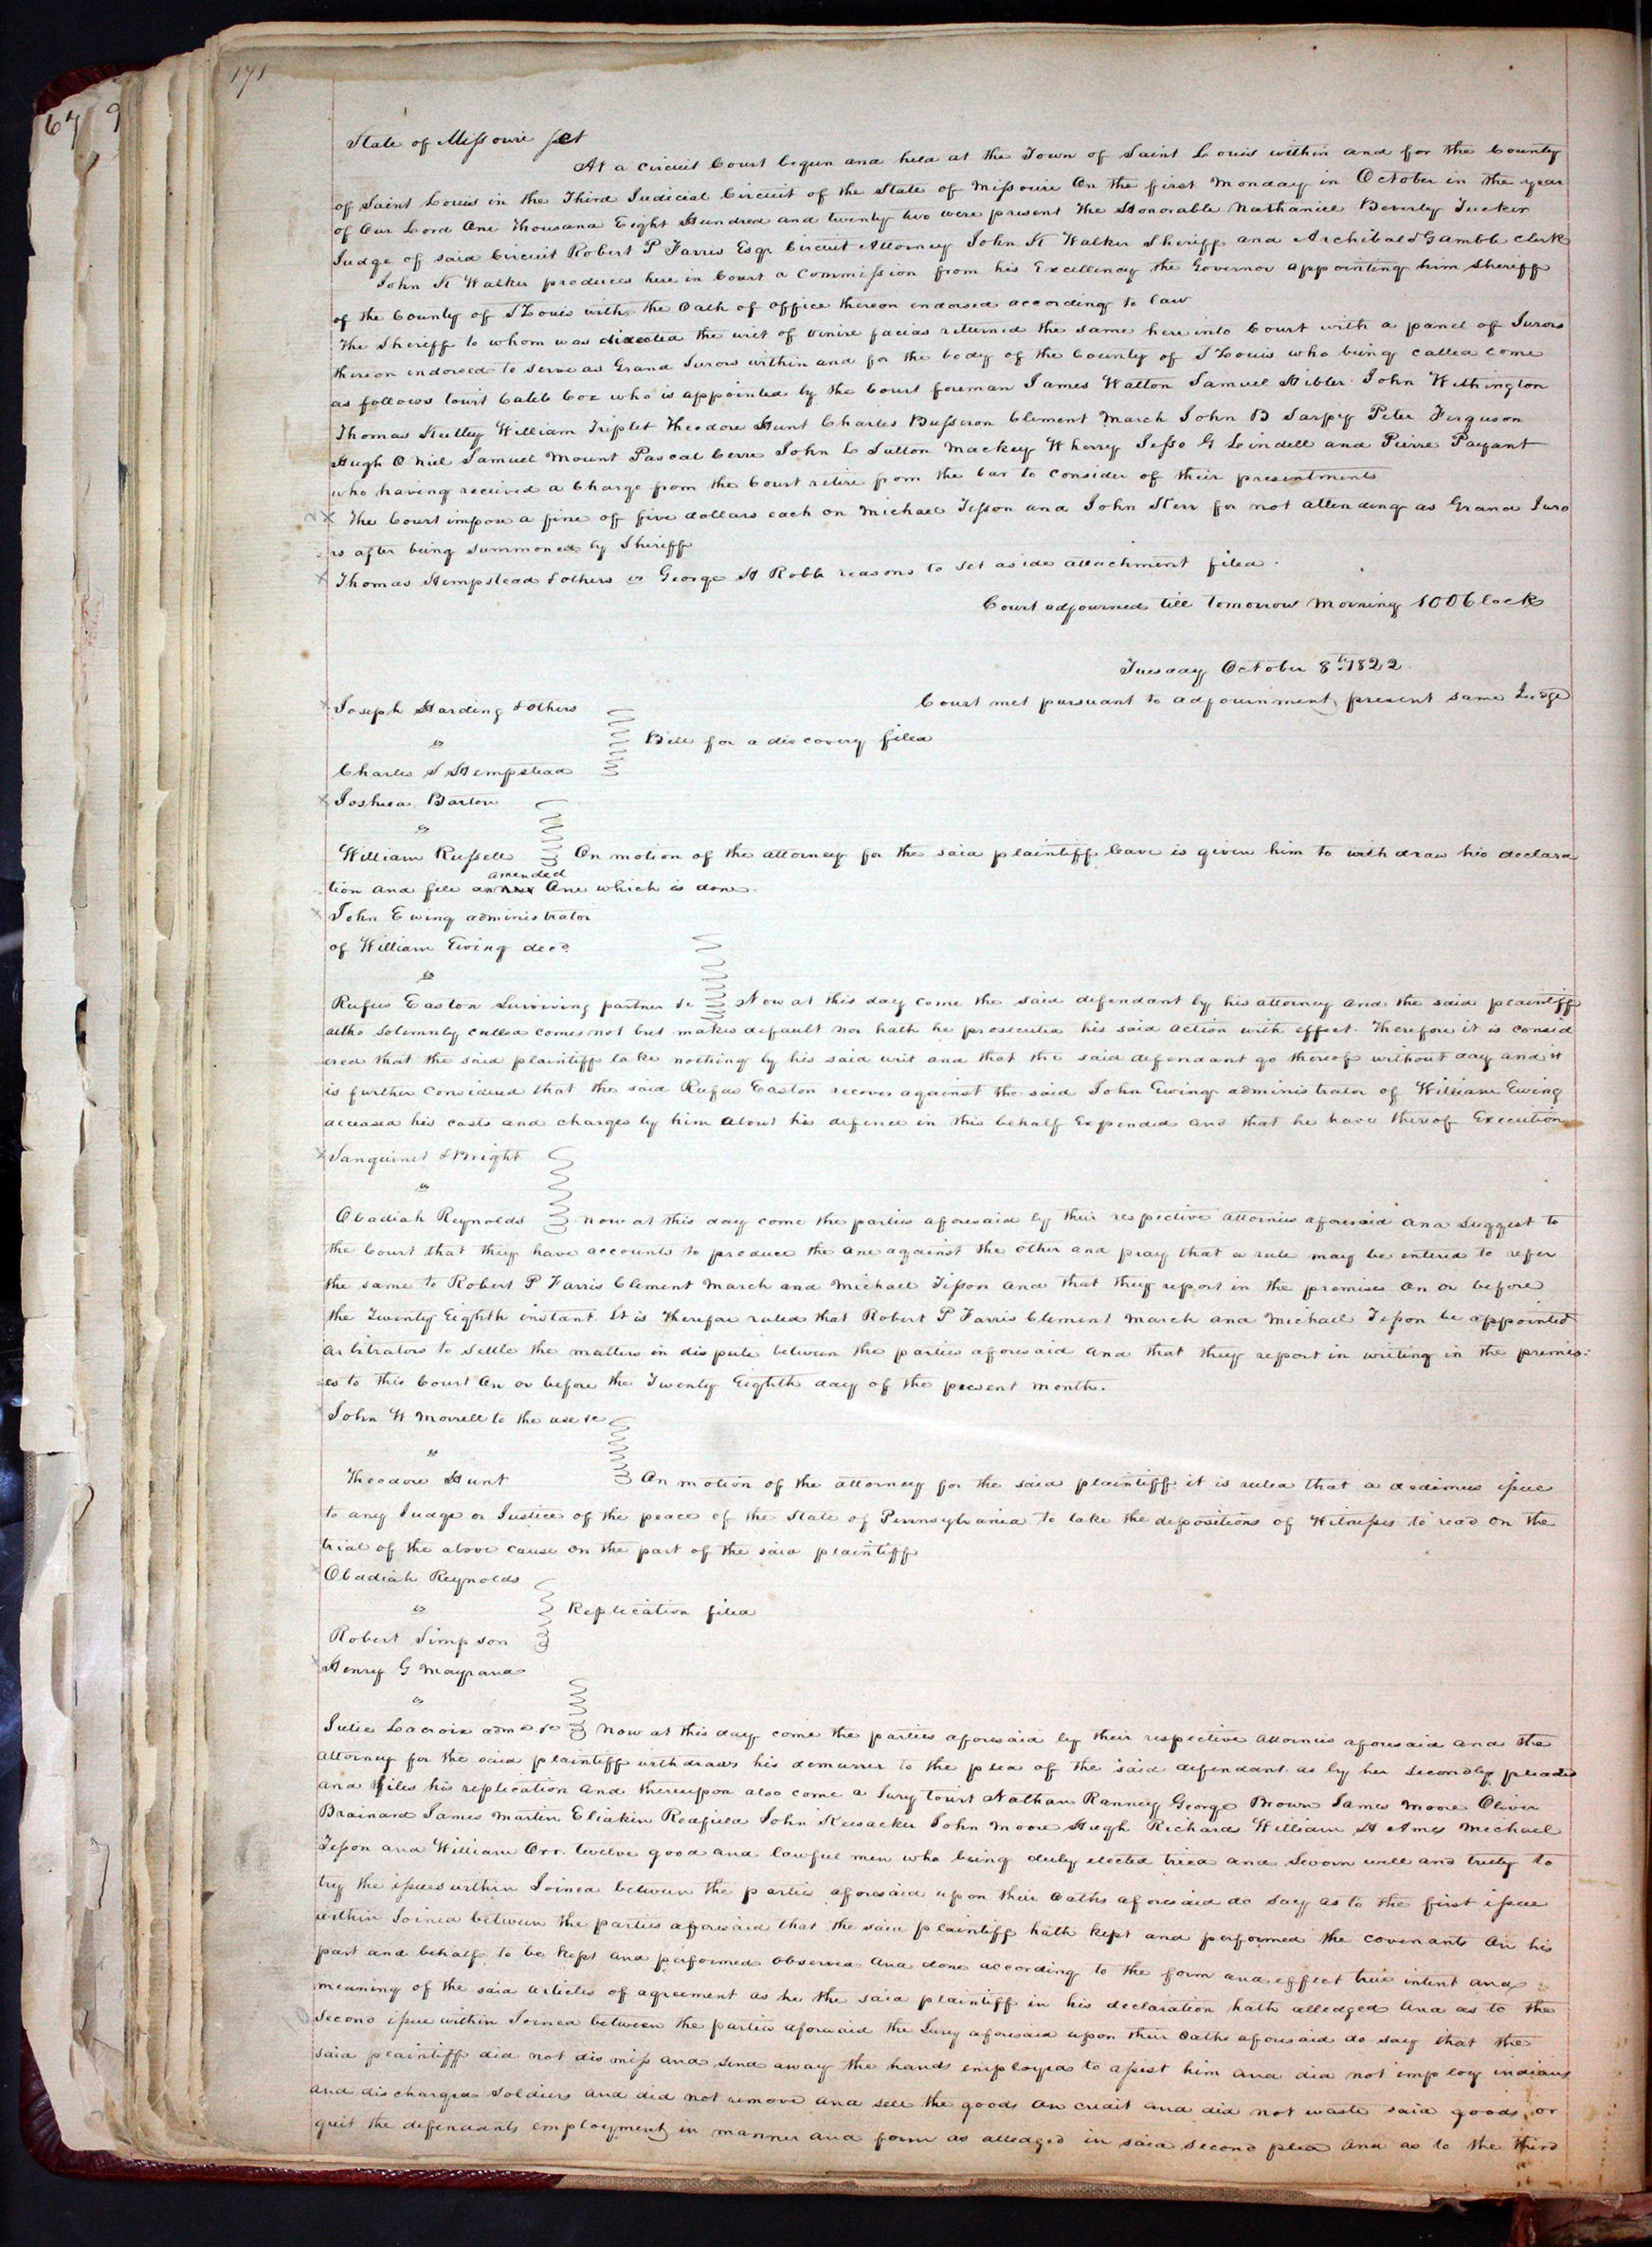 171
67 9
State of Missouri Sct
At a Circuit Court begun and held at the Town of Saint Louis within and for the County
of Saint Louis in the Third Judicial Circuit of the State of Missouri On the first Monday in October in the year
of Our Lord One Thousand Eight Hundred and twenty two were present The Honorable Nathaniel Beverly Tucker
Judge of said Circuit Robert P Farris Esqr Circuit Attorney John K Walker Sheriff and Archibald Gamble clerk
John K Walker produces here in Court a Commission from his Excellency the Governor appointing him Sheriff
of the County of St Louis with the Oath of office thereon endorsed according to law
The Sheriff to whom was directed the writ of venire facias returned the same here into Court with a panel of Jurors
thereon endorsed to serve as Grand Jurors within and for the body of the County of St Louis who being called come
as follows towit Caleb Cox who is appointed by the Court foreman James Walton Samuel Hibler John Withington
Thomas Kelley William Triplet Theodore Hunt Charles Busseron Clement March John B Sarpy Peter Ferguson
Hugh O Niel Samuel Mount Pascal Cerre John L Sutton Mackey Wherry Jesse G Lindell and Pierre Payant
who having received a Charge from the Court retire from the bar to consider of their presentments
The Court impose a fine of five dollars each on Michael Tesson and John Kerr for not attending as Grand Juro
rs after being summoned by Sheriff
Thomas Hempstead & others vs George H Robb reasons to set aside attachment filed.
Court adjourned till tomorrow Morning 10 OClock
Tuesday October 8th 1822
Court met pursuant to adjournment present same Judge
Joseph Harding & Others
vs
Bill for a discovery filed
Charles S Hempstead
Joshua Barton
vs
William Russell On motion of the attorney for the said plaintiff leave is given him to withdraw his declara
amended
tion and file an One which is done.
John Ewing administrator
of William Ewing decd
vs
Rufus Easton Surviving partner &c Now at this day come the said defendant by his attorney and the said plaintiff
altho solemnly called comes not but makes default nor hath he prosecuted his said action with effect. Therefore it is consid
ered that the said plaintiff take nothing by his said writ and that the said defendant go thereof without day and it
is further considered that the said Rufus Easton recover against the said John Ewing administrator of William Ewing
deceased his costs and charges by him about his defence in this behalf Expended and that he have thereof Execution
Sanguinet & Bright
vs
Obadiah Reynolds Now at this day come the parties aforesaid by their respective attornies aforesaid and Suggest to
the Court that they have accounts to produce the one against the other and pray that a rule may be entered to refer
the same to Robert P Farris Clement March and Michael Tesson and that they report in the premises on or before
the Twenty Eighth instant. It is Therefore ruled that Robert P Farris Clement March and Michael Tesson be appointed
arbitrators to settle the matters in dispute between the parties aforesaid and that they report in writing in the premis:
es to this Court On or before the Twenty Eighth day of the present month.
John W Morrell to the use &c
vs
Theodore Hunt On motion of the attorney for the said plaintiff it is ruled that a dedimus issue
to any Judge or Justice of the peace of the State of Pennsylvania to take the depositions of Witnesses to read on the
trial of the above cause on the part of the said plaintiff
Obadiah Reynolds
vs
Replication filed
Robert Simpson
Henry G Mayrand
vs
Julie Lacroix admx &c Now at this day come the parties aforesaid by their respective attornies aforesaid and the
attorney for the said plaintiff withdraws his demurrer to the plea of the said defendant as by her secondly pleaded
and files his replication and thereupon also come a Jury towit Nathan Ranney George Brown James Moore Oliver
Brainard James Martin Eliakin Redfield John John Moore Hugh Richards William H Ames Michael
Tesson and William Orr. twelve good and lawful men who being duly elected tried and Sworn well and truly to
try the issues within Joined between the parties aforesaid upon their oaths aforesaid do say as to the first issue
within Joined between the parties aforesaid that the said plaintiff hath kept and performed the covenants on his
part and behalf to be kept and performed observed and done according to the form and effect true intent and
meaning of the said articles of agreement as he the said plaintiff in his declaration hath alledged And as to the
Second issue within Joined between the parties aforesaid the Jury aforesaid upon their oaths aforesaid do say that the
said plaintiff did not dismiss and send away the hands employed to assist him and did not employ indians
and discharged soldiers and did not remove and sell the goods on credit and did not waste said goods, or
quit the defendants employment in manner and form as alledged in said second plea And as to the third